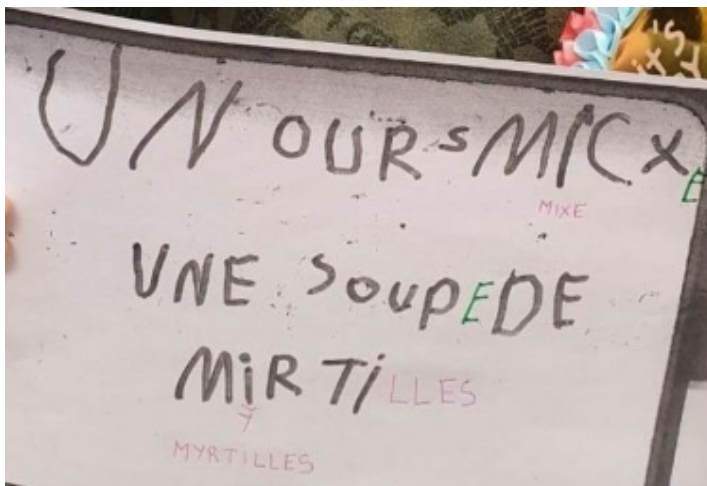 it's
UN OURS MICXE
MIXE
UNE SOUPE DE
MiRTiLLES
Y
MYRTILLES